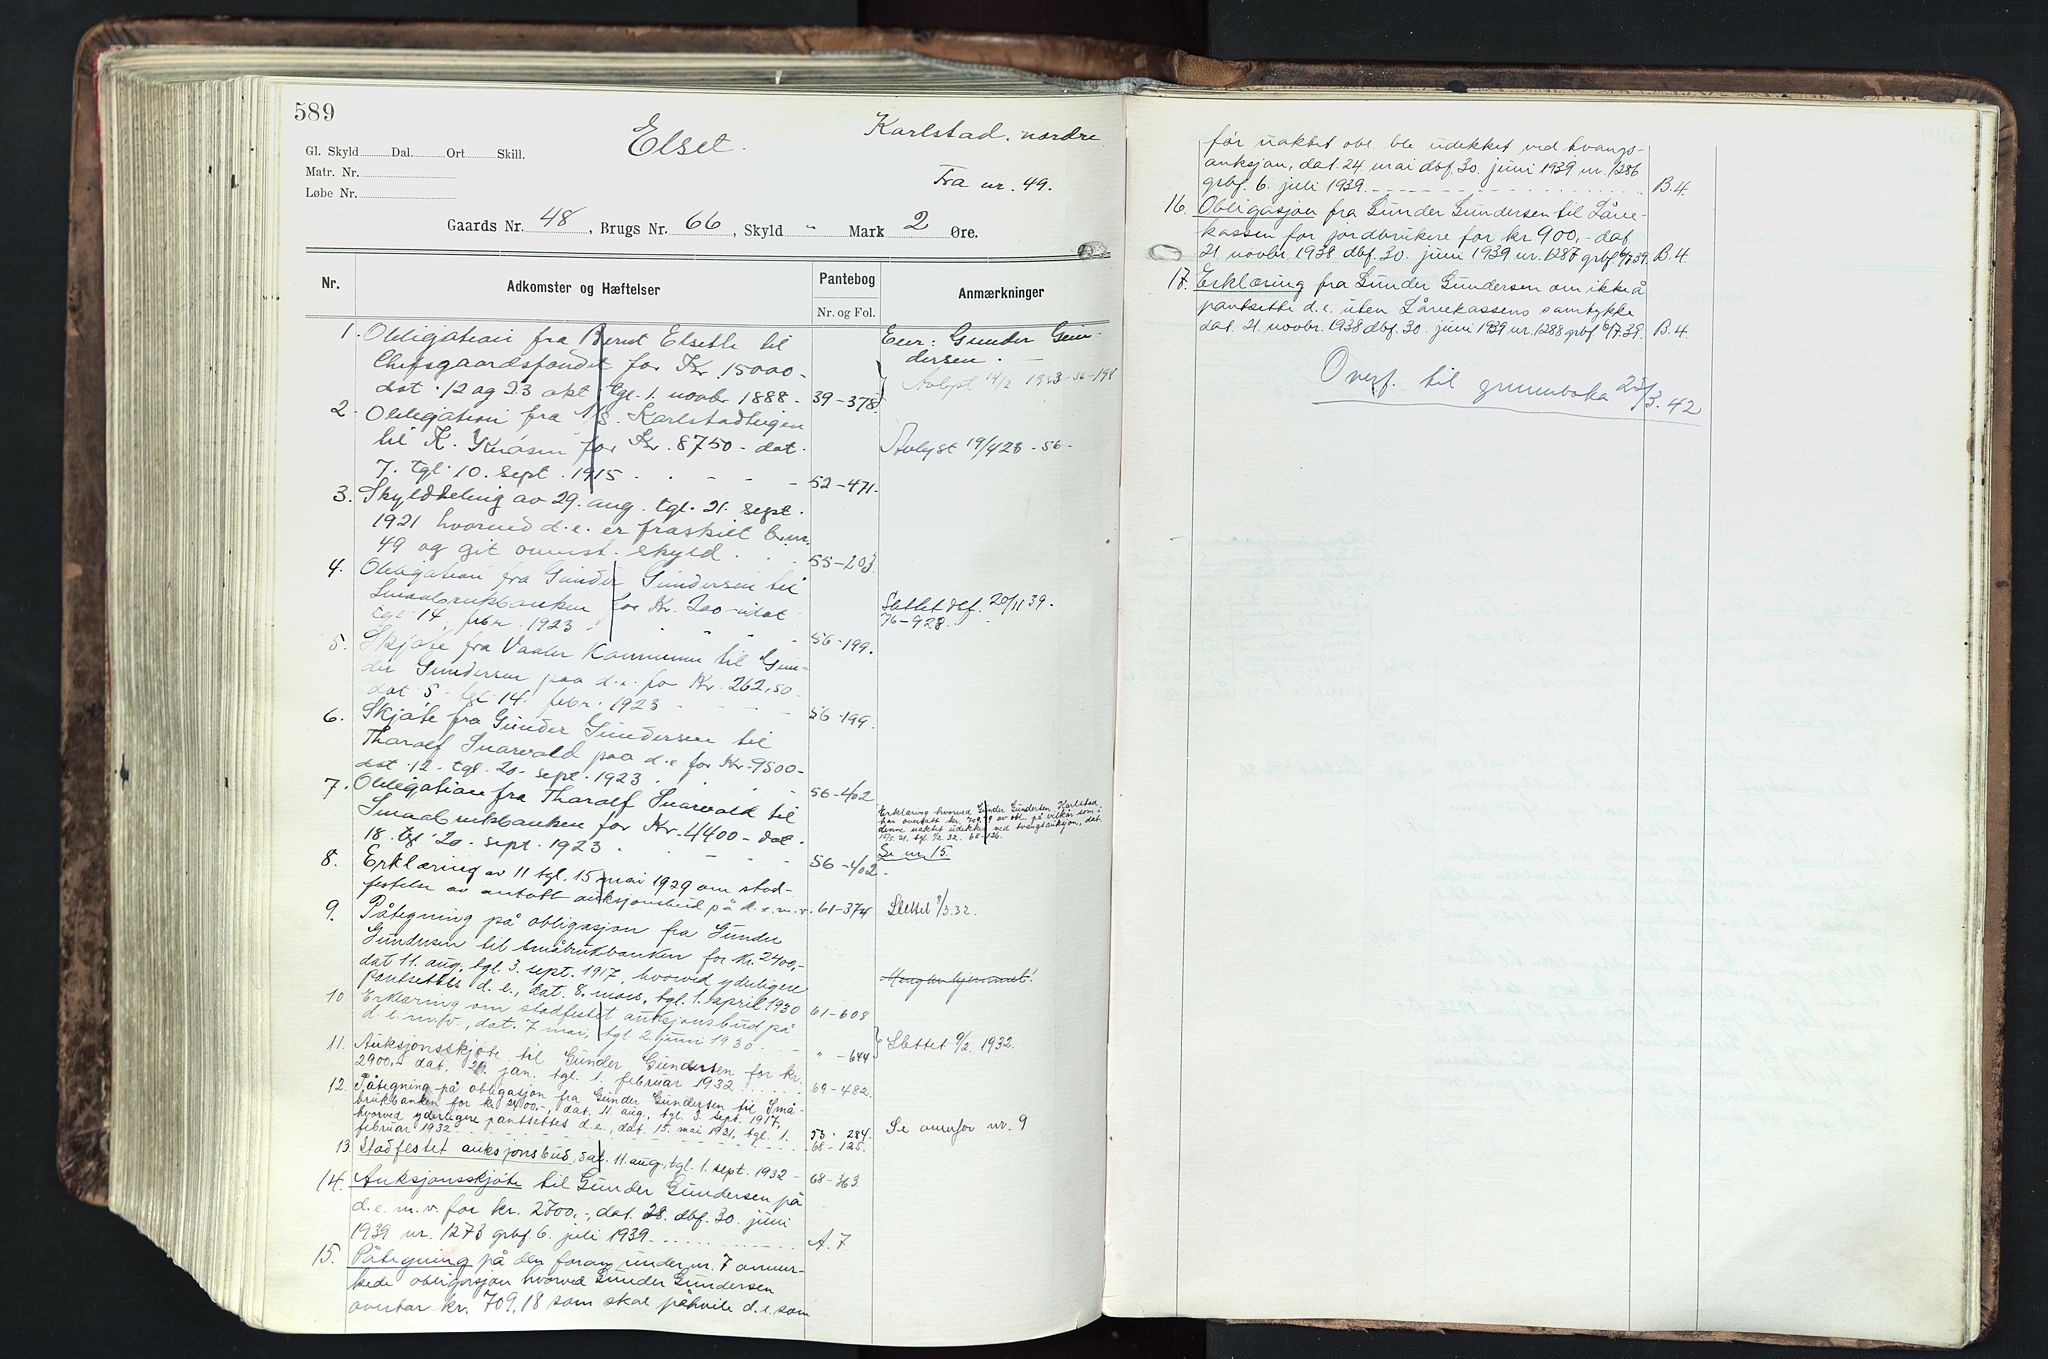 589
Elset.
Karlstad nordre
Gl. Skyld Dal. Ort Skill.
Matr. Nr.
Løbe Nr.
Fra nr. 49.
Gaards Nr. 48, Brugs Nr. 66, Skyld " Mark 2 Øre.
Nr.
Adkomster og Hæftelser
Pantebog
Nr. og Fol.
Anmærkninger
1. Obligation fra Bernt Elseth til
Chefsgaardsfondet for Kr 15000-
dat. 12 og 23 okt tgl. 1. novbr 1888- 39-378.
Eier: Gunder Gun-
dersen.
Avlyst 14/2 1923-56-198
2. Obligation fra Karlstadhagen
til K. for Kr. 8750- dat.
7. tgl. 10. sept. 1915 52-471.
Avlyst 19/4 23-56-
3. Skylddeling av 29. aug. tgl. 21. sept.
1921 hvorved d.e. er fraskilt b.nr.
49 og git ovenst. skyld. 55-203
4. Obligation fra Gunder Gundersen til
Smaabrukbanken for Kr. 200- dat
tgl 14. febr. 1923 56-199.
Slettet dbf. 20/11 39.
76-928.
5. Skjøte fra Vaaler Kommune til Gun-
der Gundersen paa d.e. for Kr. 262,50-
dat 5- tgl 14. febr. 1923 56-199.
6. Skjøte fra Gunder Gundersen til
Tharalf Snarvold paa d.e. for Kr. 9500-
dat. 12. tgl. 20. sept. 1923 56-402
7. Obligation fra Tharalf Snarvold til
Smaabrukbanken for Kr. 4400- dat.
18. tgl 20. sept. 1923 56-402.
Erklæring hvorved Gunder Gundersen Karlstad
har overtatt kr. 709,18 av obl. på vilkår som i
denne uaktet udekket ved tvangsauksjon, dat.
15/5 31. tgl. 1/2. 32. 68-126.
Se nr 15.
8. Erklæring av 11 tgl. 15 mai 1929 om stad-
festelse av antatt auksjonsbud på d.e.m.v. 61-374
Slettet 8/3.32.
9. Påtegning på obligasjon fra Gunder
Gundersen til Småbrukbanken for kr. 2400,-
dat 11. aug. tgl. 3. sept. 1917, hvorved yderligere
pantsettes d.e., dat. 8. mars, tgl. 1. april 1930 61-608
10. Erklæring om stadfestet auksjonsbud på
d.e.m.v., dat. 7 mai, tgl 2. juni 1930 " -644
Slettet 9/2. 1932.
11. Auksjonsskjøte til Gunder Gundersen for kr.
2900,- dat. 29. jan. tgl. 1. februar 1932 69-482.
12. Påtegning på obligasjon fra Gunder Gundersen til Små-
brukbanken for kr 2400,-, dat. 11 aug. tgl. 3. sept. 1917,
hvorved yderligere pantsettes d.e., dat. 15. mai 1931, tgl. 1.
februar 1932 53-284.
68-125.
Se ovenfor nr. 9
13. Stadfestet auksjonsbud, dat. 11 aug. tgl. 1. sept. 1932 - 68-363.
14. Auksjonsskjøte til Gunder Gundersen på
d.e.m.v. for kr. 2700,-, dat. 28. dbf. 30. juni
1939 nr. 1273 grbf 6. juli 1939 A.7
15. Påtegning på den foran under nr. 7 anmer-
kede obligasjon hvorved Gunder Gundersen
overtar kr. 709,18 som skal påhvile d.e. som
før uaktet obl. ble udekket ved tvangs-
auksjon, dat. 24. mai dbf. 30. juni 1939 nr. 1286
grbf. 6. juli 1939 B.4.
16. Obligasjon fra Gunder Gundersen til Låne-
kassen for jordbrukere for kr 900,- dat.
21. novbr. 1938 dbf. 30. juni 1939 nr. 1287 grbf. 6/7 39. B.4.
17. Erklæring fra Gunder Gundersen om ikke å
pantsette d.e. uten Lånekassens samtykke
dat. 21. novbr. 1938 dbf. 30. juni 1939 nr. 1288 grbf 6/7. 39. B.4.
Overf. til grunnboka 23/3. 42